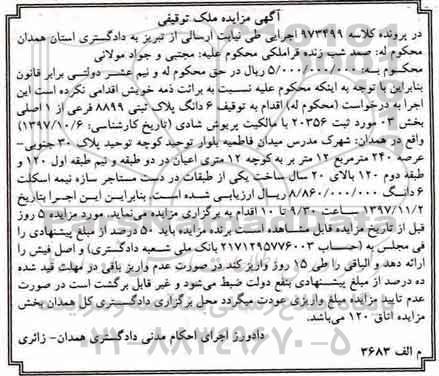 آگهی مزایده ملک توقیفی
در پرونده کلاسه ۹۷۳۴۹۹ اجرایی طی نیابت ارسالی از تبریز به دادگستری استان همدان
محکوم له: صمد شب زنده قراملکی محکوم علیه: مجتبی و جواد مولائی
محکوم به: ۵/۰۰۰/۰۰۰/۰۰۰ ریال در حق محکوم له و نیم عشر دولتی برابر قانون
بنابراین با توجه به اینکه محکوم علیه نسبت به برائت ذمه خویش اقدامی نکرده است این
اجرا به درخواست (محکوم له) اقدام به توقیف ۶ دانگ پلاک ثبتی ۸۸۹۹ فرعی از ۱ اصلی
بخش ۰۳ مورد ثبت ۲۰۳۵۶ با مالکیت پریوش شادی (تاریخ کارشناسی: ۱۳۹۷/۱۰/۶)
واقع در همدان: شهرک مدرس میدان فاطمیه بلوار توحید کوچه توحید پلاک ۳۰ جنوبی-
عرصه ۲۴۰ مترمربع ۱۲ متر بر به کوچه ۱۲ متری اعیان در دو طبقه و نیم طبقه اول ۱۲۰ و
طبقه دوم ۱۲۰ بالای ۲۰ سال ساخت یکی از طبقات در دست مستاجر سازه نیمه اسکلت
۶ دانگ ۸/۸۶۰/۰۰۰/۰۰۰ ریال ارزیابی شده است. بنابراین این اجرا بتاریخ
۱۳۹۷/۱۱/۲ ساعت ۹/۳۰ تا ۱۰ اقدام به برگزاری مزایده می‌نماید. مورد مزایده ۵ روز
قبل از تاریخ مزایده قابل مشاهده است برنده مزایده باید ۵۰ درصد از مبلغ پیشنهادی را
فی مجلس به (حساب ۲۱۷۱۲۹۵۷۷۶۰۰۳ بانک ملی شعبه دادگستری) و اصل فیش را
ارائه دهد و الباقی را طی ۱۵ روز واریز کند در صورت عدم واریز باقی در مهلت قید شده
ده درصد از مبلغ پیشنهادی بنفع دولت ضبط می‌شود و غیر قابل برگشت است در صورت
عدم تایید مزایده مبلغ واریزی عودت میگردد محل برگزاری دادگستری کل همدان بخش
مزایده اتاق ۱۲۰ می‌باشد.
دادورز اجرای احکام مدنی دادگستری همدان- زائری
م الف ۳۶۸۳
۰۲۱-۸۸۳۴۹۶۷۰-۵